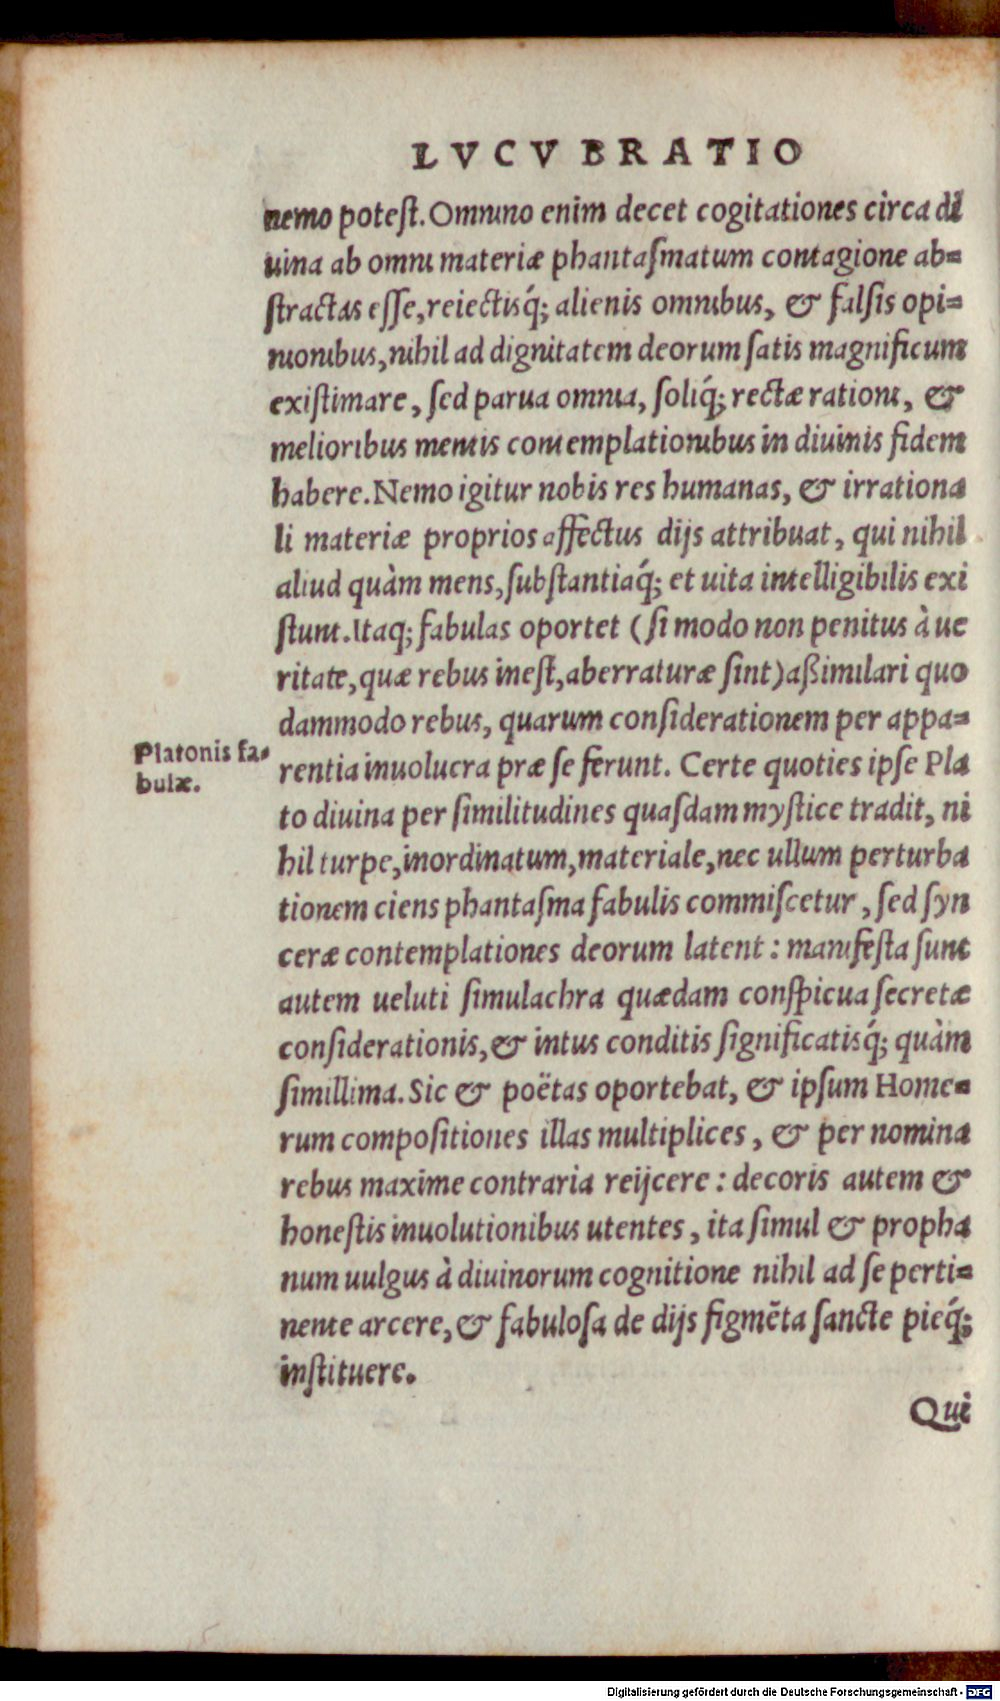 LVCVBRATIO
nemo potest. Omnino enim decet cogitationes circa di
uina ab omni materiæ phantasmatum contagione ab=
stractas esse, reiectisq́; alienis omnibus, & falsis opi=
nionibus, nihil ad dignitatem deorum satis magnificum
existimare, sed parua omnia, soliq́; rectæ rationi, &
melioribus mentis contemplationibus in diuinis fidem
habere. Nemo igitur nobis res humanas, & irrationa
li materiæ proprios affectus dijs attribuat, qui nihil
aliud quàm mens, substantiaq́; et uita intelligibilis exi
stunt. Itaq; fabulas oportet (si modo non penitus à ue
ritate, quæ rebus inest, aberraturæ sint) aßimilari quo
dammodo rebus, quarum considerationem per appa=
Platonis fa=
bulæ.
rentia inuolucra præ se ferunt. Certe quoties ipse Pla
to diuina per similitudines quasdam mystice tradit, ni
hil turpe, inordinatum, materiale, nec ullum perturba
tionem ciens phantasma fabulis commiscetur, sed syn
ceræ contemplationes deorum latent: manifesta sunt
autem ueluti simulachra quædam conspicua secretæ
considerationis, & intus conditis significatisq́; quàm
simillima. Sic & poëtas oportebat, & ipsum Home=
rum compositiones illas multiplices, & per nomina
rebus maxime contraria reijcere: decoris autem &
honestis inuolutionibus utentes, ita simul & propha
num uulgus à diuinorum cognitione nihil ad se perti=
nente arcere, & fabulosa de dijs figmẽta sancte pieq́;
instituere.
Qui
Digitalisierung gefördert durch die Deutsche Forschungsgemeinschaft - DFG